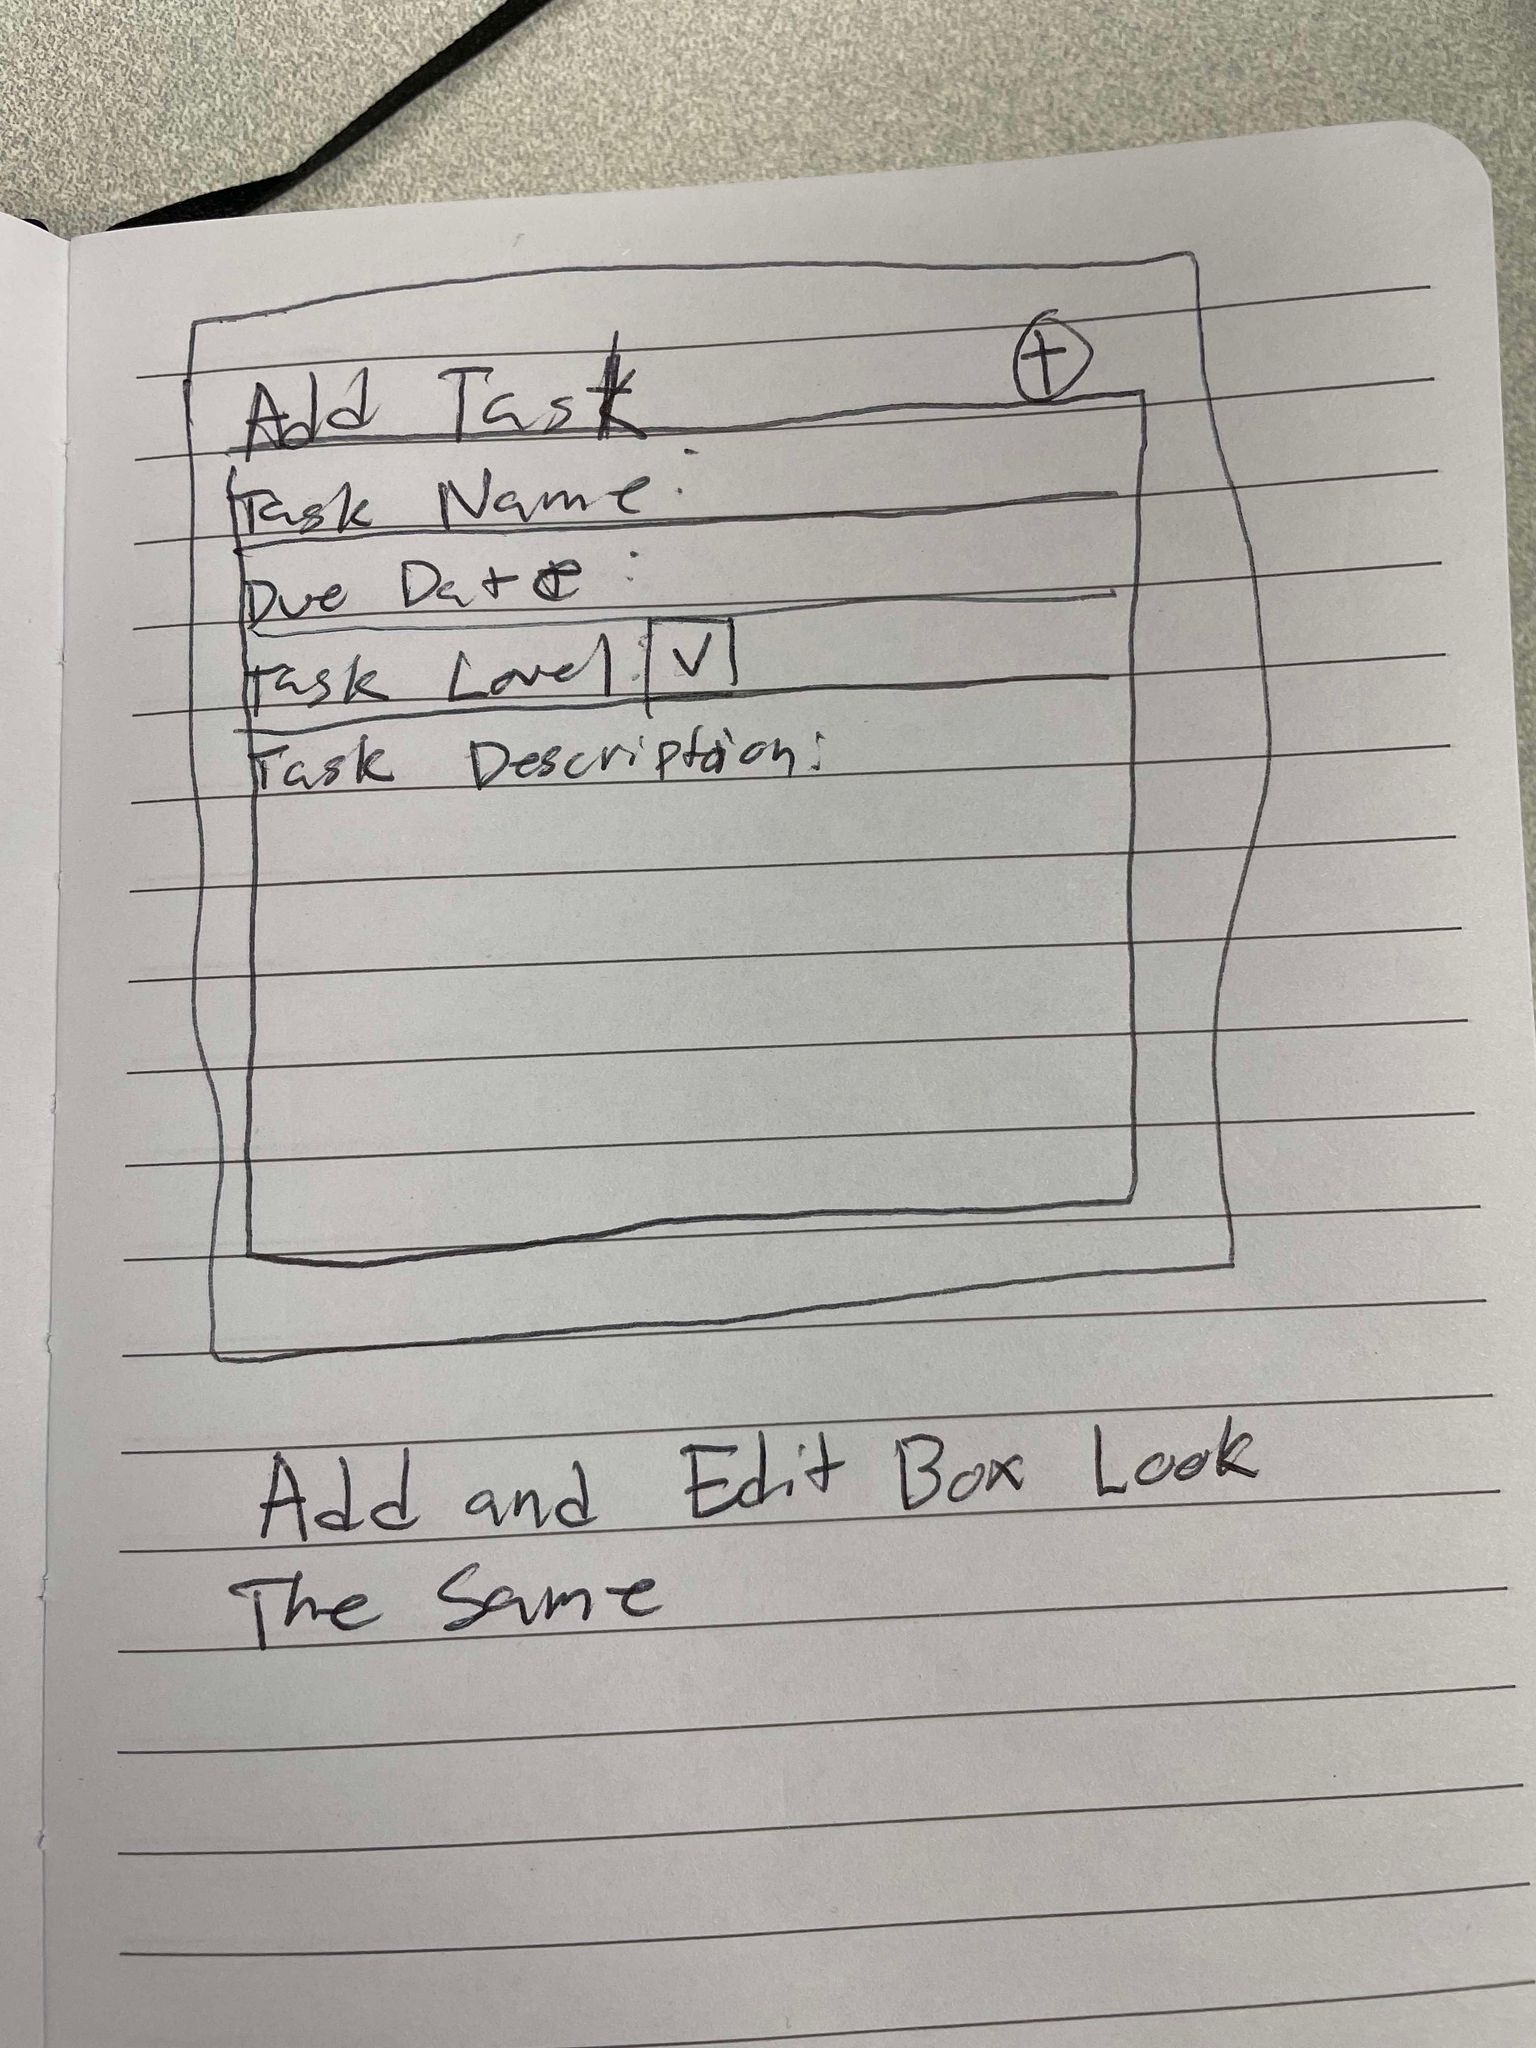 Add Task +
Task Name:
Due Date:
Task Level: V
Task Description:
Add and Edit Box Look
The Same